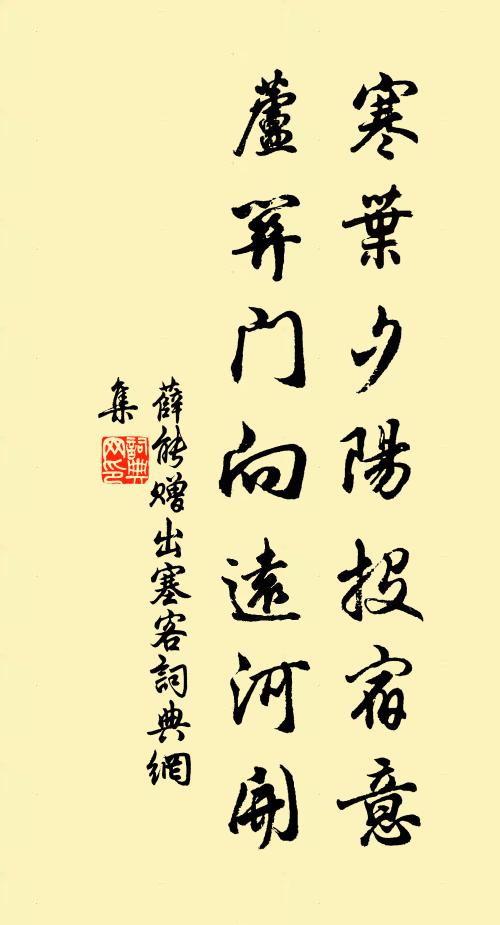 寒葉夕陽投宿意
蘆關門向遠河開
薛能贈出塞客詞典網
集
詞典
网印